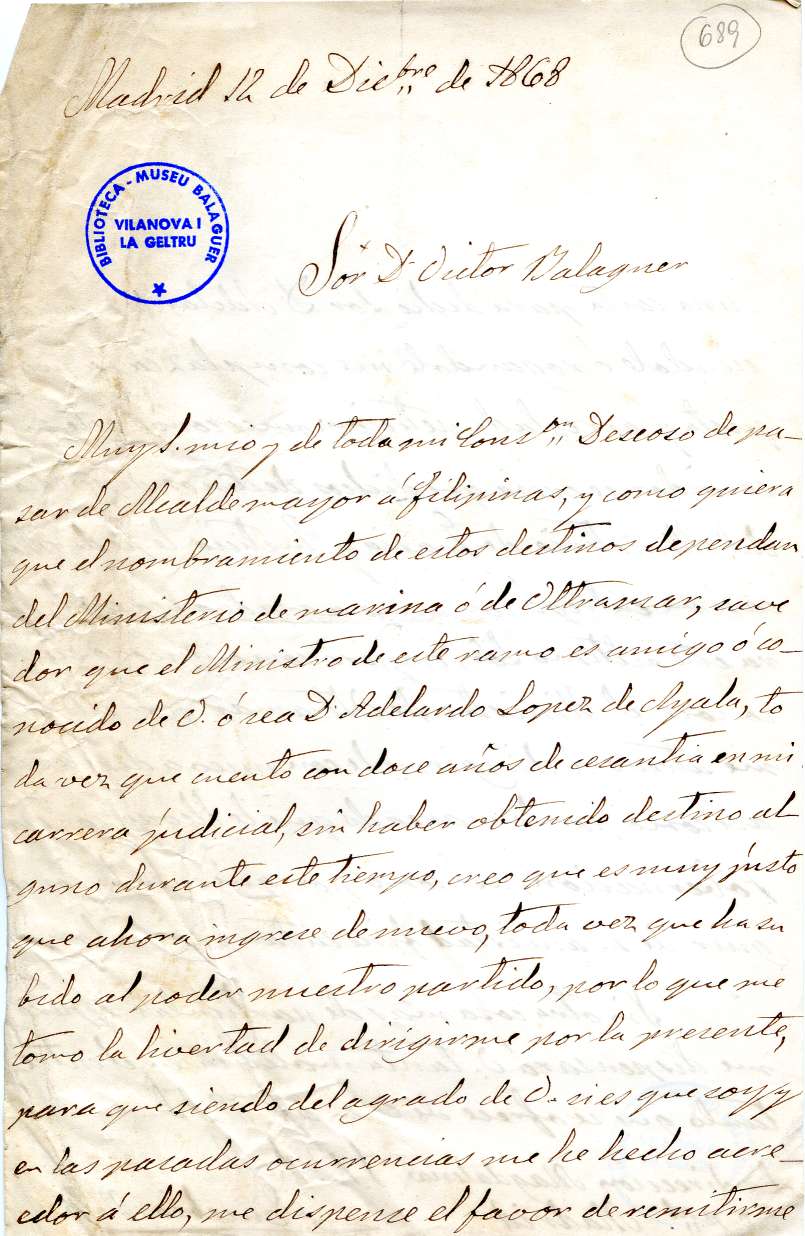 689
Madrid 12 de Dic.bre de 1868
BIBLIOTECA - MUSEU BALAGUER
VILANOVA I
LA GELTRU
Sor Dn Victor Balaguer
Muy S. mio y de toda mi Cons.on Deseoso de pa-
sar de Alcalde mayor á Filipinas, y como quiera
que el nombramiento de estos destinos dependan
del Ministerio de marina ó de Ultramar, save
dor que el Ministro de este ramo es amigo ó co-
nocido de V. ó sea Dn Adelardo Lopez de Ayala, to
da vez que cuento con doce años de cesantia en mi
carrera judicial, sin haber obtenido destino al
guno durante este tiempo, creo que es muy justo
que ahora ingrese de nuevo, toda vez que ha su
bido al poder nuestro partido, por lo que me
tomo la livertad de dirigirme por la presente,
para que siendo del agrado de V. si es que soy y
en las pasadas ocurrencias me he hecho acre-
edor á ello, me dispense el favor de remitirme